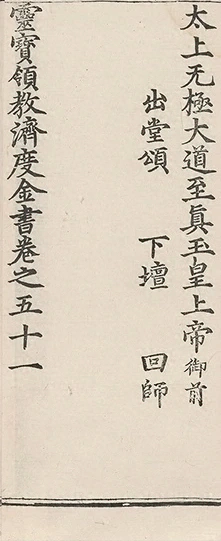 太上无極大道至真玉皇上帝御前
出堂頌　下壇　回師
靈寶領教濟度金書卷之五十一